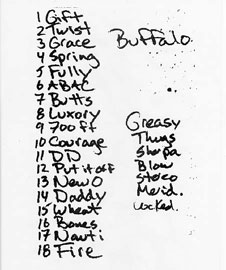 1 Gift
2 Twist
3 Grace
4 Spring
5 Fully
6 ABAC
7 Butts
8 Luxory
9 700 ft
10 Courage
11 DD
12 Put it off
13 New O
14 Daddy
15 Wheat
16 Bones
17 Nauti
18 Fire
Buffalo.
Greasy
Thugs
Sherpa
Blow
stereo
Merid.
Locked.